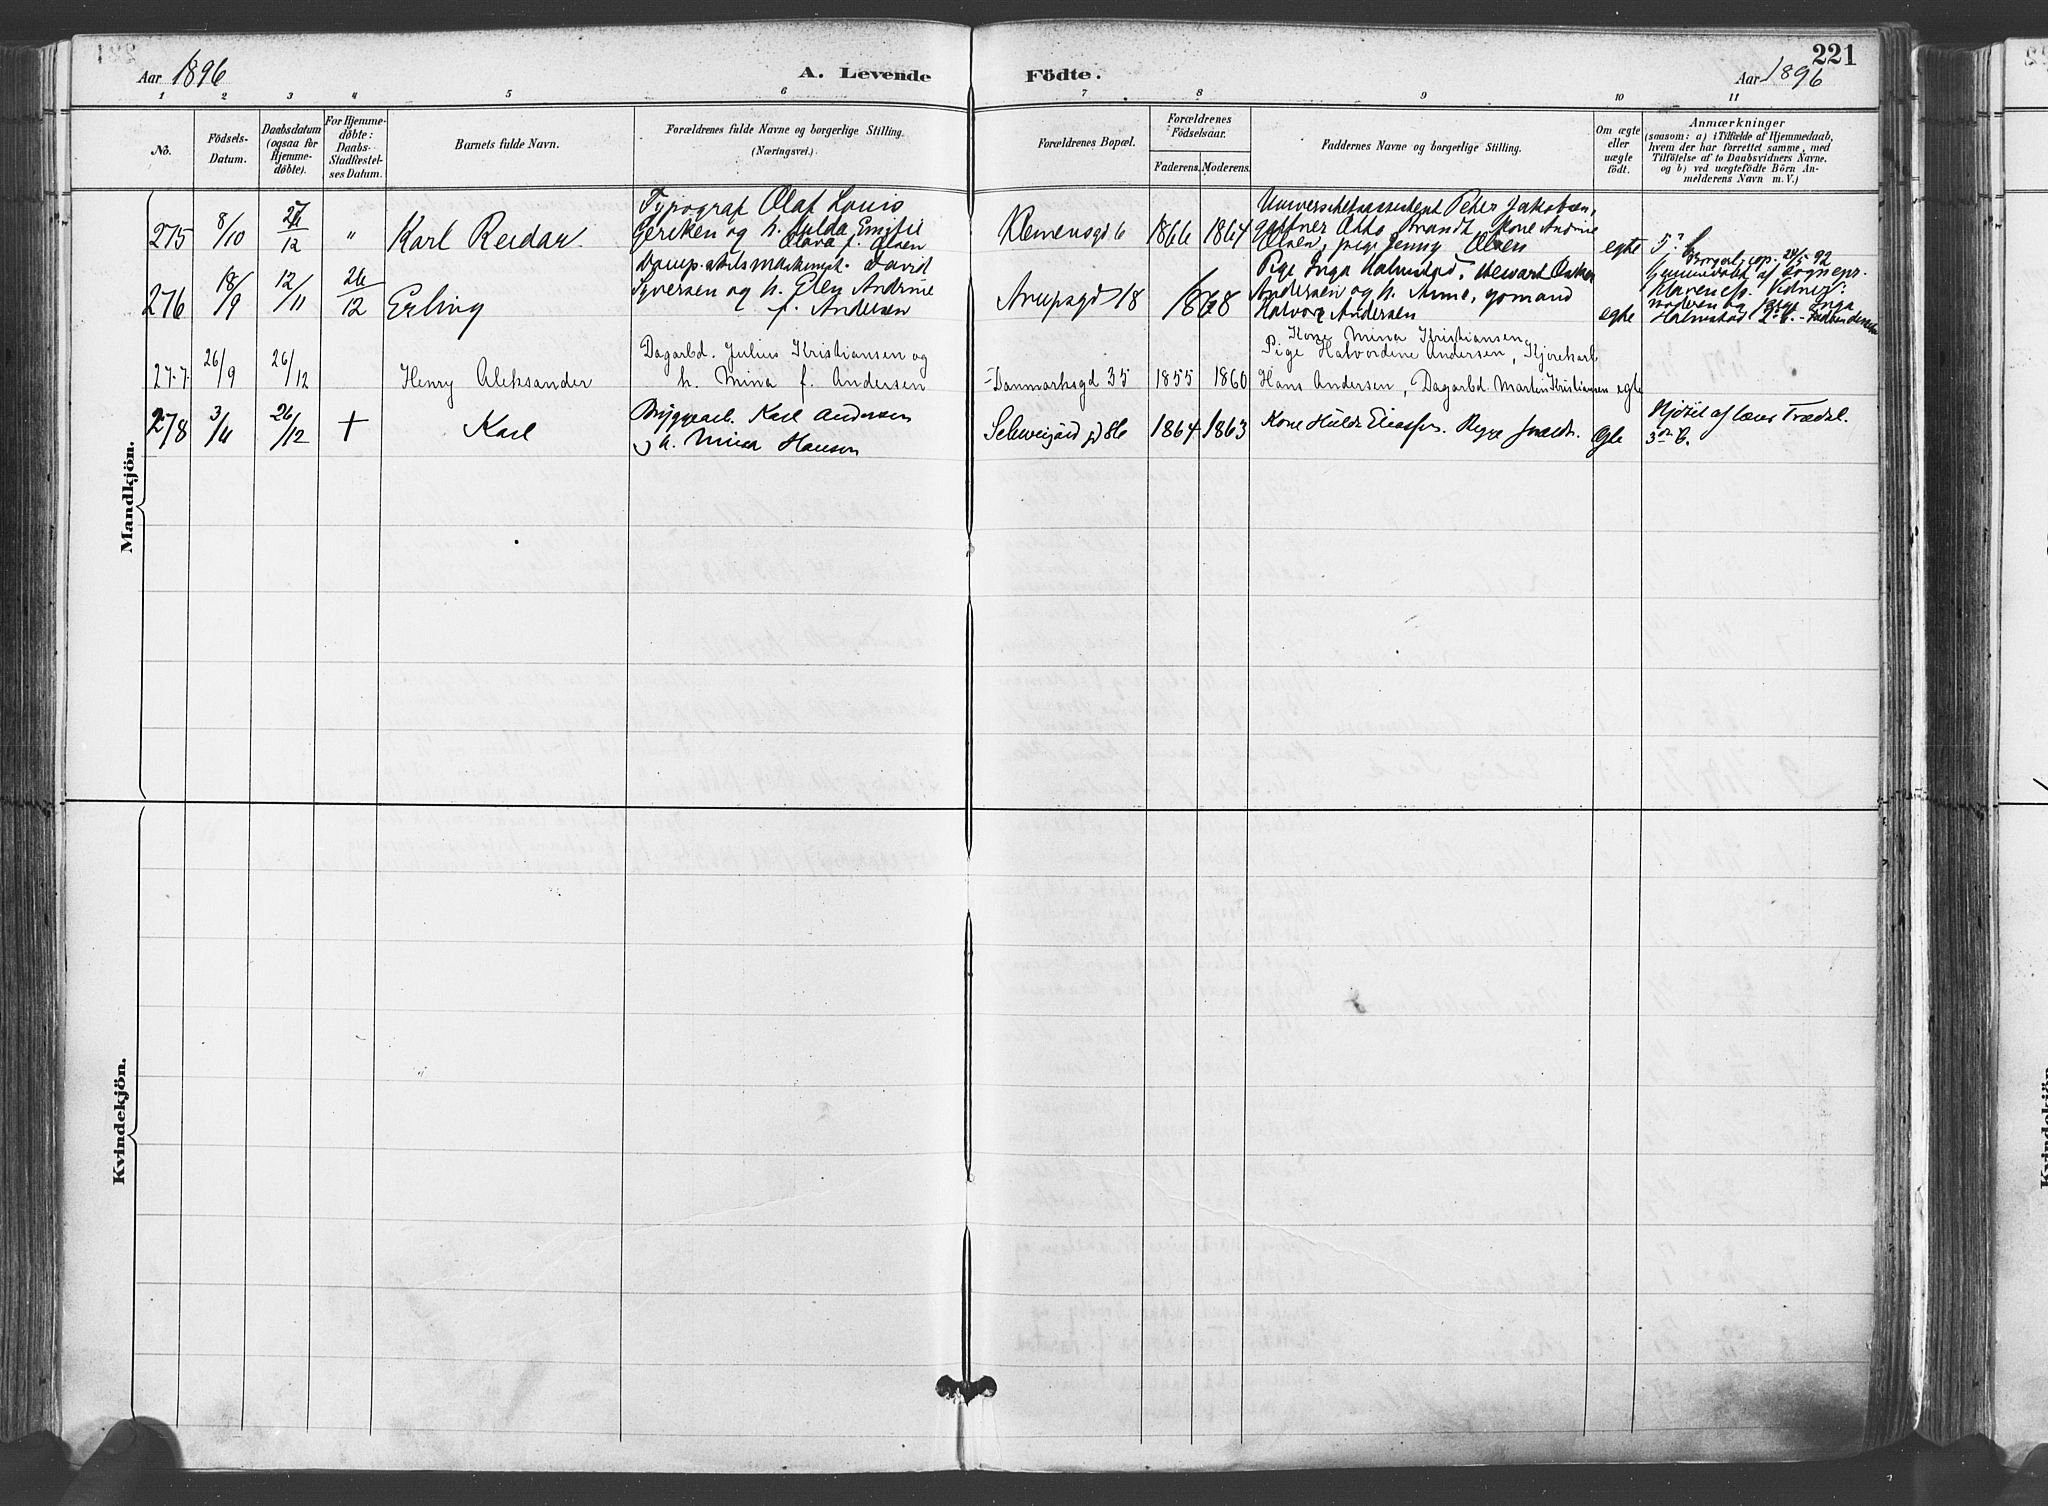 221
Aar 1896
A. Levende Födte.
Aar 1896
1 2 3 4 5 6 7 8 9 10 11
No.
Födsels-
Datum.
Daabsdatum
(ogsaa for
Hjemme-
döbte).
For Hjemme-
döbte:
Daabs-
Stadfæstel-
ses Datum.
Barnets fulde Navn.
Forældrenes fulde Navne og borgerlige Stilling.
(Næringsvei.)
Forældrenes Bopæl.
Forældrenes
Födselsaar.
Faderens. Moderens.
Faddernes Navne og borgerlige Stilling.
Om ægte
eller
uægte
födt.
Anmærkninger
(saasom: a) i Tilfælde af Hjemmedaab,
hvem der har forrettet samme, med
Tilföielse af to Daabsvidners Navne.
og b) ved uægtefödte Börn An-
melderens Navn m. V.)
Mandkjön.
275 8/10 /12 " Karl Reidar
Typograf Olaf Louis
Geriken og h. Hulda Emilie
Olava f. Olsen
Klemensgd 6 1866 1864
Universitetsassistent Peter Jakobsen,
gartner Otto Brandt, kone Andrine
Olsen, pige Jenny Olsen
egte
Borgerl. cop. 92
276 18/9 12/11 26/12 Erling
David
Syversen og h. Elen Andrine
f. Andersen
Arupsgd 18 1868
Pige Inga Halmstad, Stewart Oskar
Andersen og h. Anne, gaamand
Halvor Andersen
egte
Hjemmedøbt af Sognepr.
Klaveness. Vidner:
moderen og Inga
Halmstad
277 26/9 26/12 Henry Aleksander
Dagarbd. Julius Kristiansen og
h. Mina f. Andersen
Danmarksgd 35 1855 1860
Kone Mina Kristiansen,
Pige Halvordine Andersen, Kjørekarl
Hans Andersen, Dagarbd. Martin Kristiansen egte
278 3/11 26/12 + Karl
Bryggearb. Karl Andersen
og h. Mina Hansen
Schweigård gd 86 1864 1863
Kone Hulda Eliassen.
Ægte
af Trædsl.
Kvindekjön.
Kvindekjön